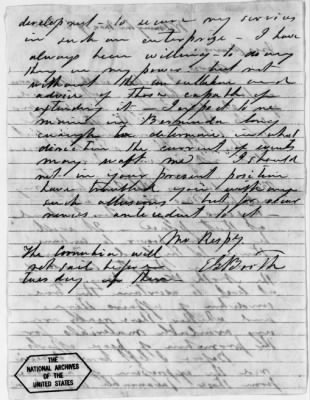 development - to secure my services
in such an enterprize - I have
always been willing - to do any
thing in my power - but not
without the consultation and
advice of those capable of
extending it - I expect to re
main in Bermuda long
enough to determine in what
direction the current of events
may waft me - I should
not in your present position
have troubled you with any
such allusions - but for
antecedent to it -
Mo Respy
The Cornubia will
not sail before
Tuesday
THE
NATIONAL ARCHIVES
OF THE
UNITED STATES